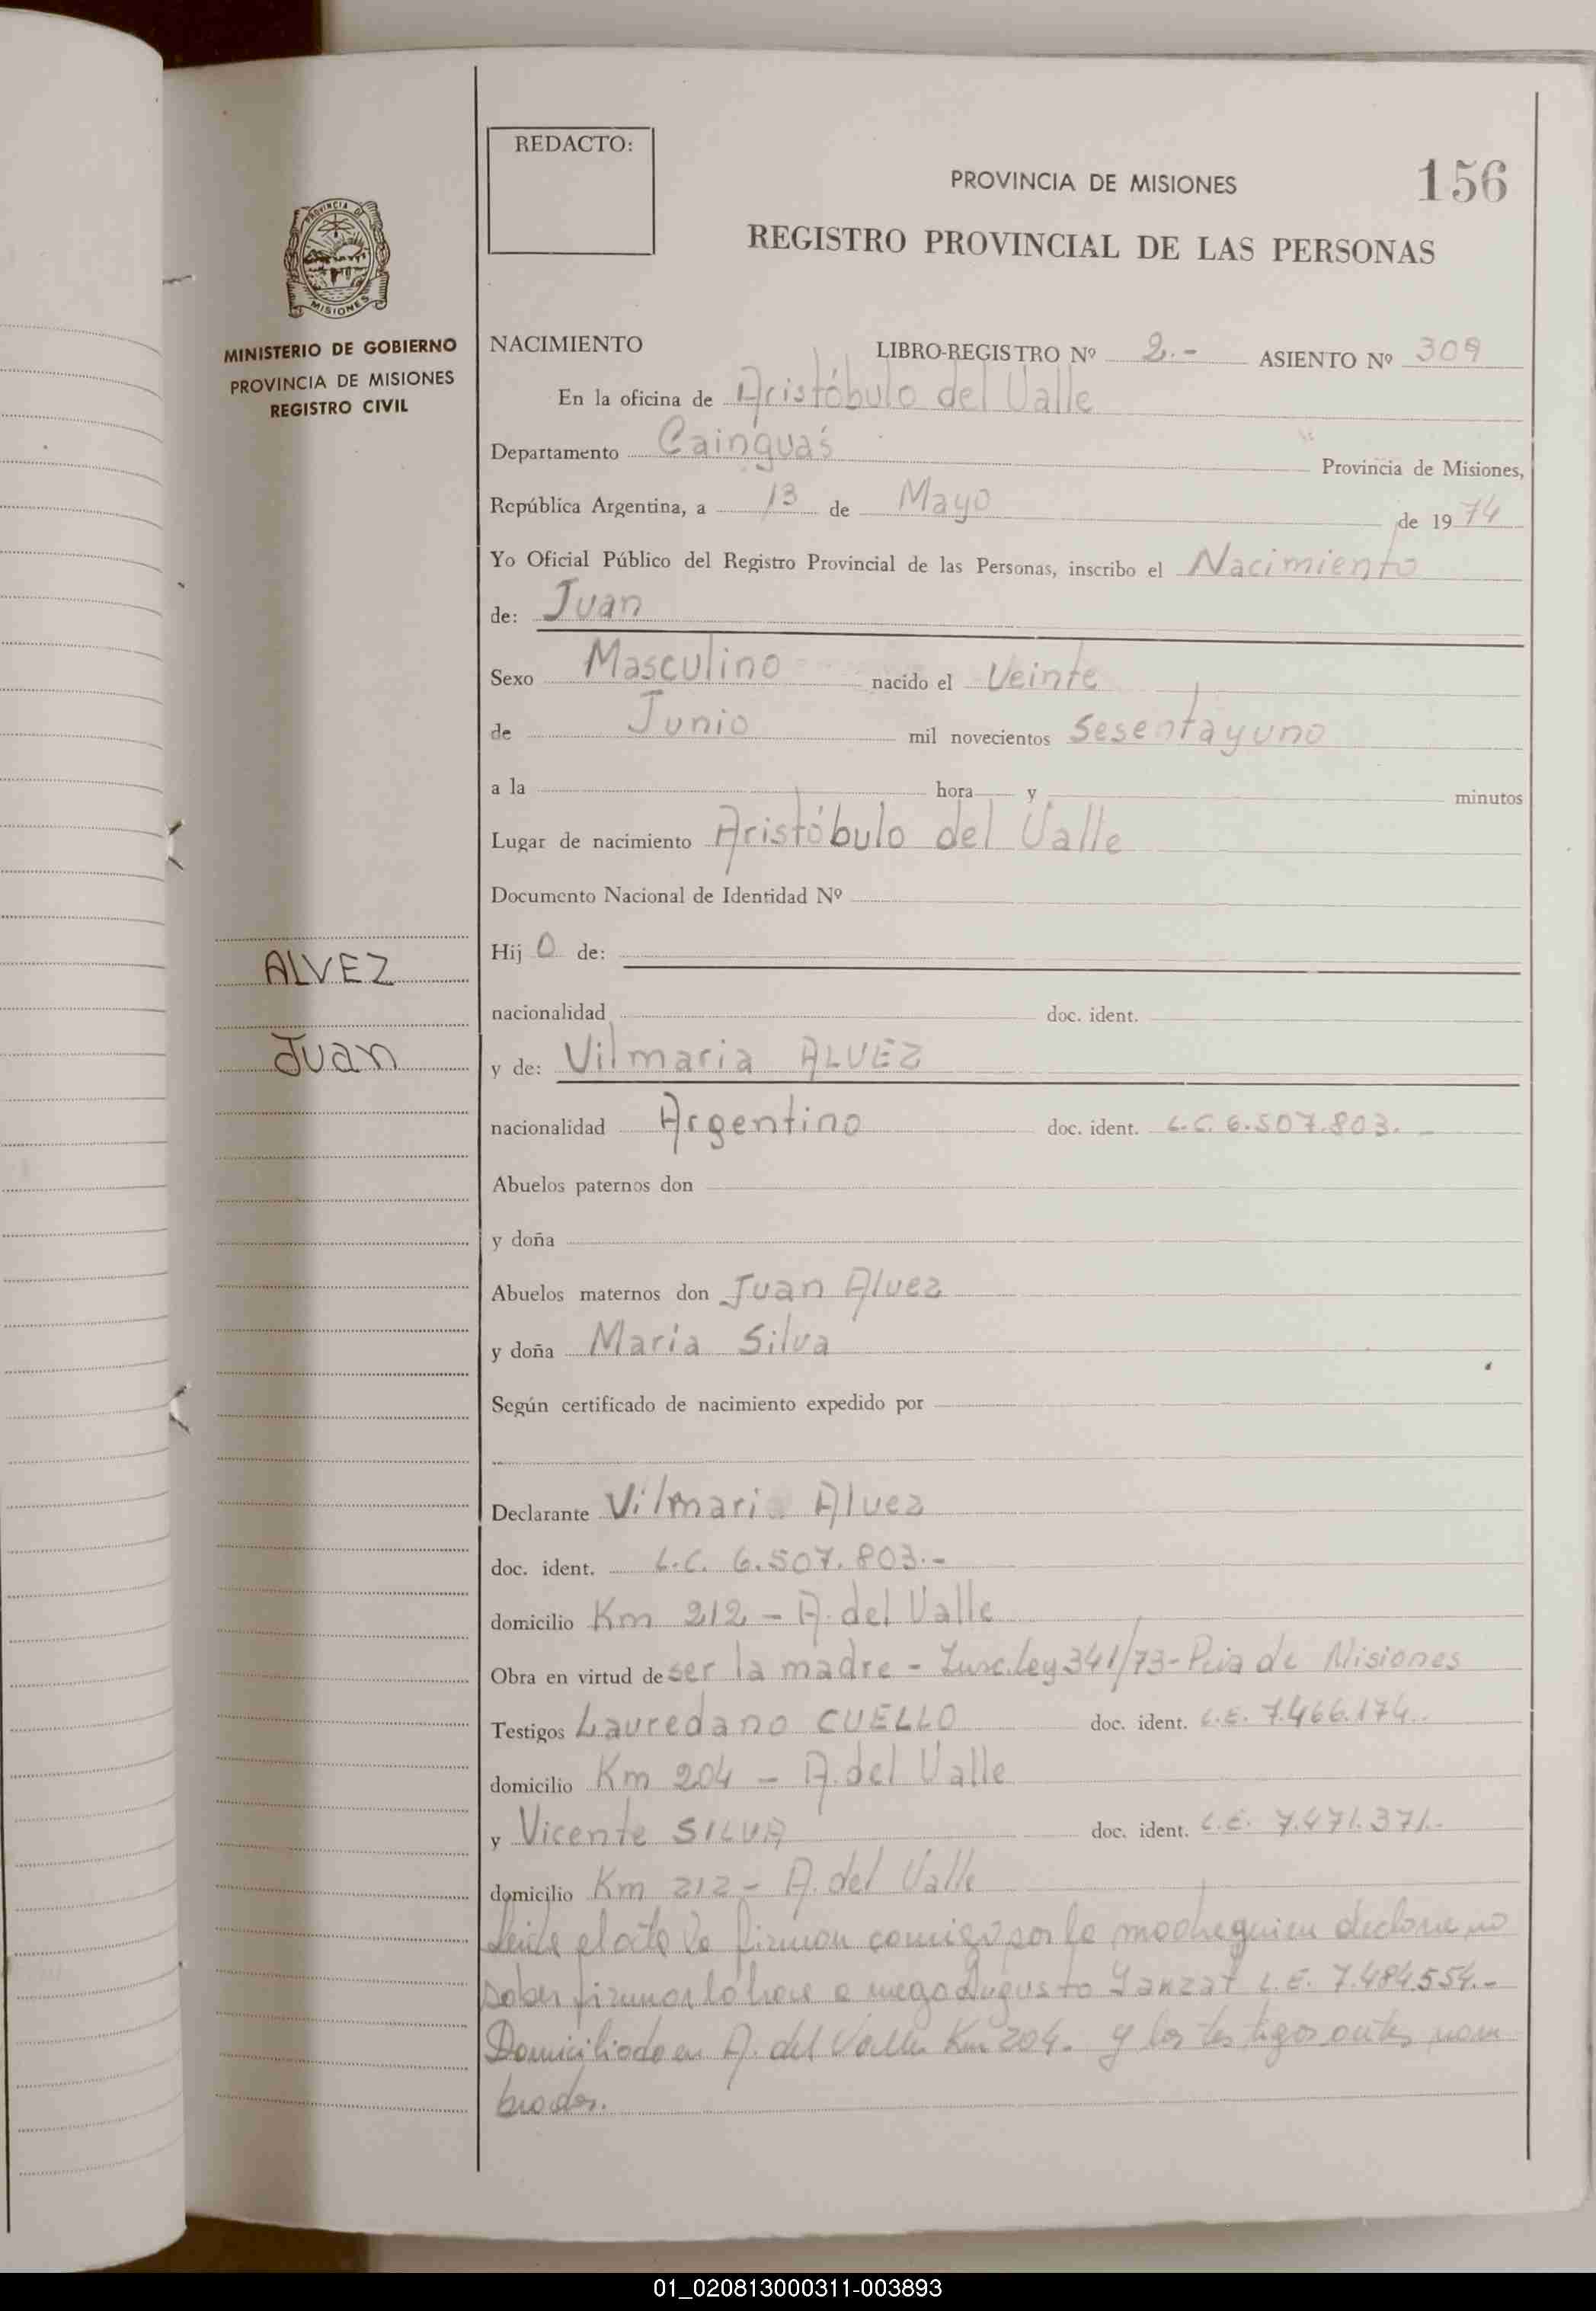 REDACTO:
PROVINCIA DE MISIONES
156
REGISTRO PROVINCIAL DE LAS PERSONAS
PROVINCIA DE
MISIONES
MINISTERIO DE GOBIERNO
PROVINCIA DE MISIONES
REGISTRO CIVIL
NACIMIENTO LIBRO-REGISTRO Nº 2.- ASIENTO Nº 309
En la oficina de Aristóbulo del Valle
Departamento Cainguás Provincia de Misiones,
República Argentina, a 13 de Mayo de 1974
Yo Oficial Público del Registro Provincial de las Personas, inscribo el Nacimiento
de: Juan
Sexo Masculino nacido el Veinte
de Junio mil novecientos Sesentayuno
a la hora y minutos
Lugar de nacimiento Aristóbulo del Valle
Documento Nacional de Identidad Nº
Hij o de:
ALVEZ
nacionalidad doc. ident.
Juan
y de: Vilmaria ALVEZ
nacionalidad Argentino doc. ident. L.C. 6.507.803.-
Abuelos paternos don
y doña
Abuelos maternos don Juan Alvez
y doña Maria Silva
Según certificado de nacimiento expedido por
Declarante Vilmaria Alvez
doc. ident. L.C. 6.507.803.-
domicilio Km 212 - A. del Valle
Obra en virtud de ser la madre - Insc. Ley 341/73 - Pcia de Misiones
Testigos Lauredano CUELLO doc. ident. L.E. 7.466.174.
domicilio Km 204 - A. del Valle
y Vicente SILVA doc. ident. L.E. 7.471.371.-
domicilio Km 212 - A. del Valle
Leida el acta la firman conmigo por la madre quien declara no
saber firmar lo hace a ruego Augusto L.E. 7.484.554.-
Domiciliado en A. del Valle Km 204. y los testigos antes nom
brados.
01_020813000311-003893